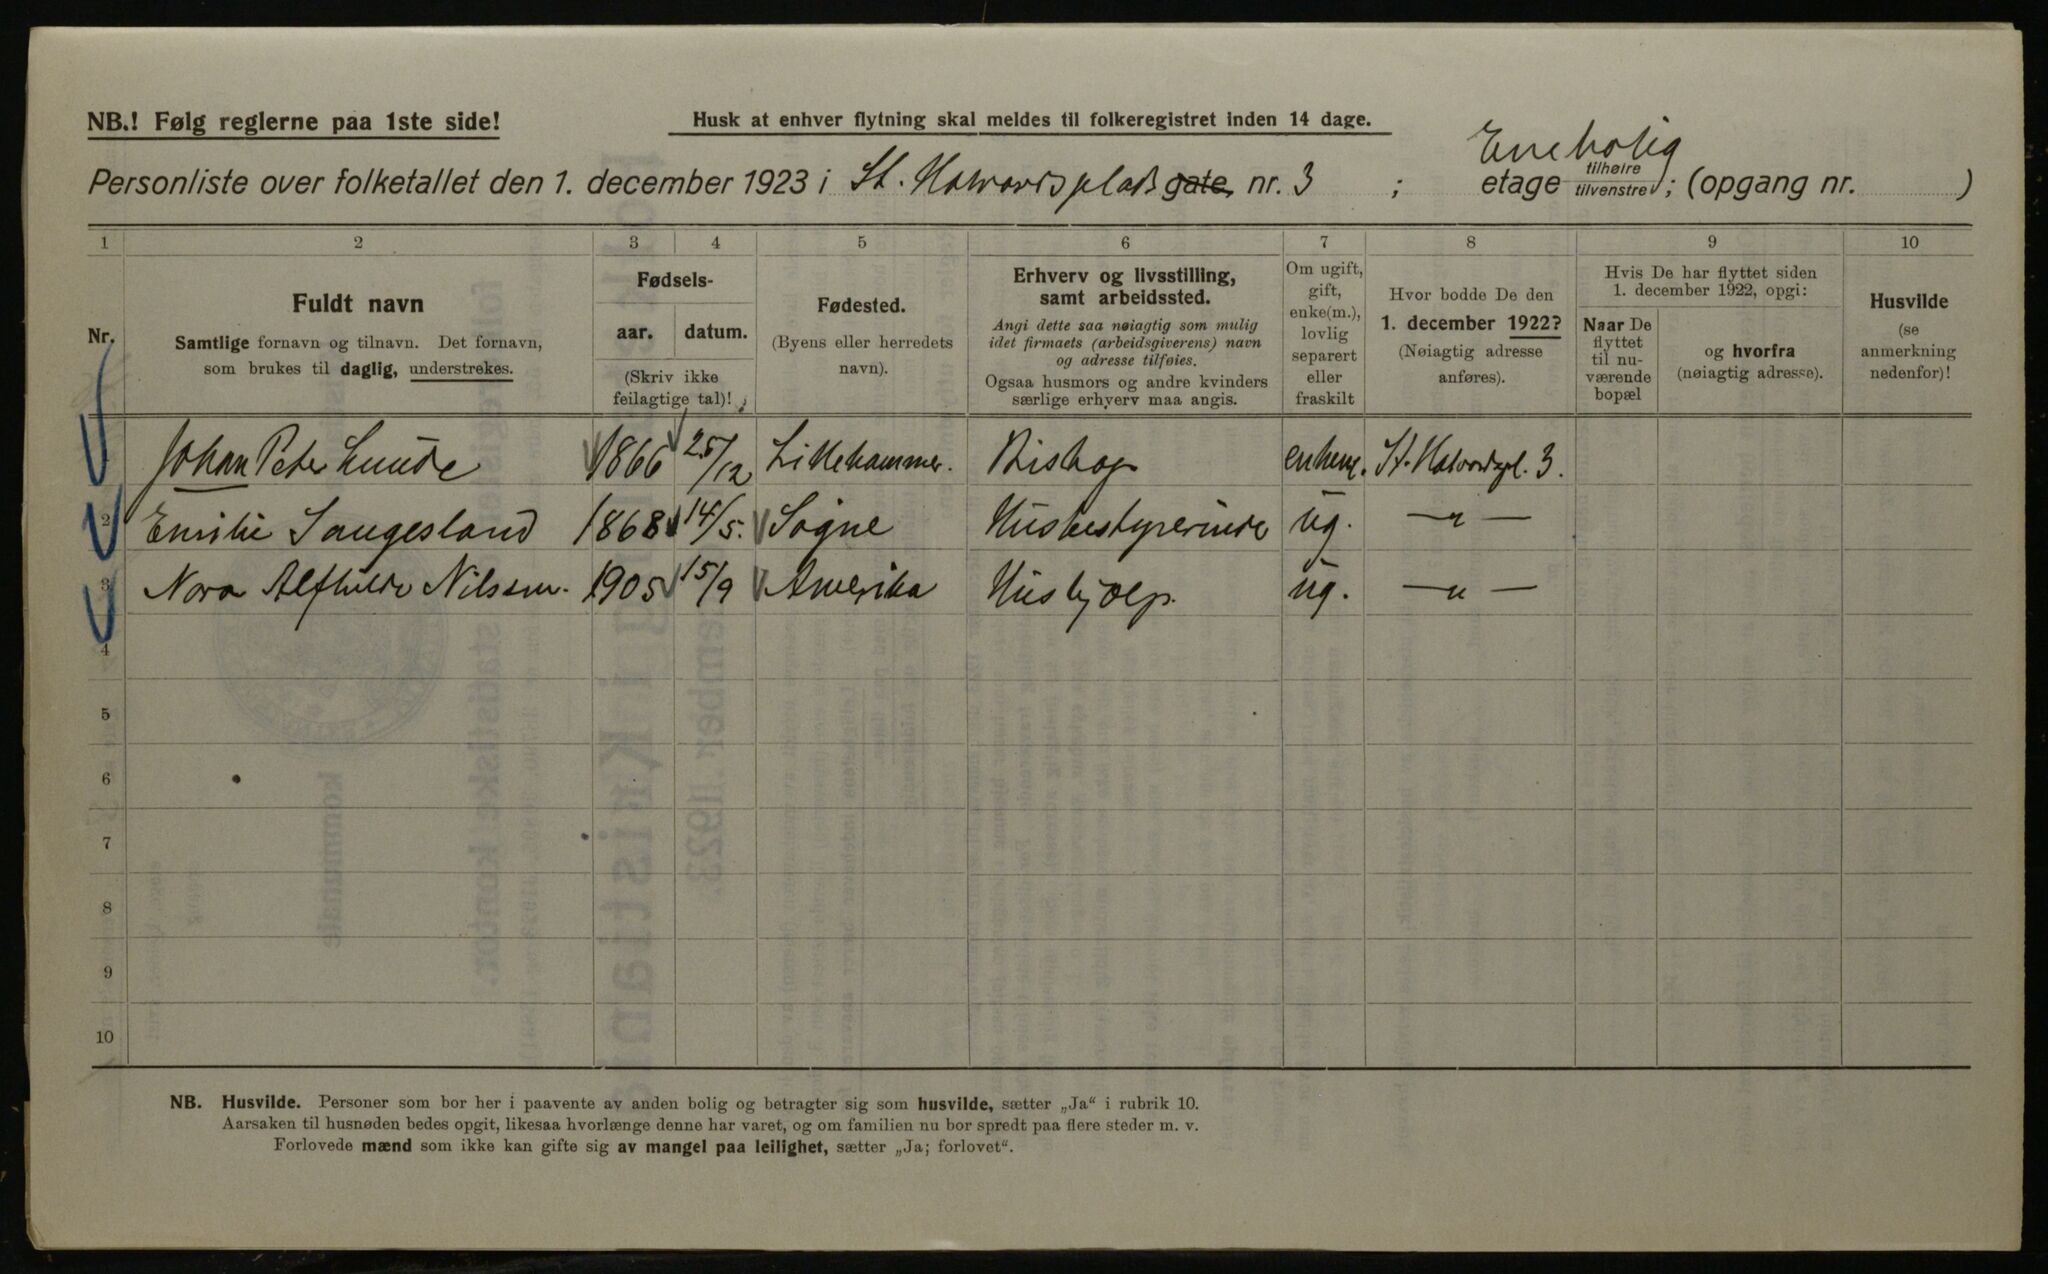 NB.! Følg reglerne paa 1ste side!
Husk at enhver flytning skal meldes til folkeregistret inden 14 dage.
Personliste over folketallet den 1. december 1923 i St. Halvardsplads gate nr. 3 ; Enebolig etage tilhøire tilvenstre; (opgang nr. )
1 2 3 4 5 6 7 8 9 10
Nr.
Fuldt navn
Samtlige fornavn og tilnavn. Det fornavn,
som brukes til daglig, understrekes.
Fødsels-
aar. datum.
(Skriv ikke
feilagtige tal)!
Fødested.
(Byens eller herredets
navn).
Erhverv og livsstilling,
samt arbeidssted.
Angi dette saa nøiagtig som mulig
idet firmaets (arbeidsgiverens) navn
og adresse tilføies.
Ogsaa husmors og andre kvinders
særlige erhverv maa angis.
Om ugift,
gift,
enke(m.),
lovlig
separert
eller
fraskilt
Hvor bodde De den
1. december 1922?
(Nøiagtig adresse
anføres).
Hvis De har flyttet siden
1. december 1922, opgi:
Naar De
flyttet
til nu-
værende
bopæl
og hvorfra
(nøiagtig adresse).
Husvilde
(se
anmerkning
nedenfor)!
Johan Peter Lunde 1866 25/12 Lillehammer. Biskop enkem. St. Halvardspl. 3.
2 Emilie Saugesland 1868 14/5. Søgne Husbestyrerinde ug. — " —
3 Nora Alfhilde Nilssen. 1905 15/9 Amerika Hushjælp. ug. — " —
4
5
6
7
8
9
10
NB. Husvilde. Personer som bor her i paavente av anden bolig og betragter sig som husvilde, sætter „Ja“ i rubrik 10.
Aarsaken til husnøden bedes opgit, likesaa hvorlænge denne har varet, og om familien nu bor spredt paa flere steder m. v.
Forlovede mænd som ikke kan gifte sig av mangel paa leilighet, sætter „Ja; forlovet“.